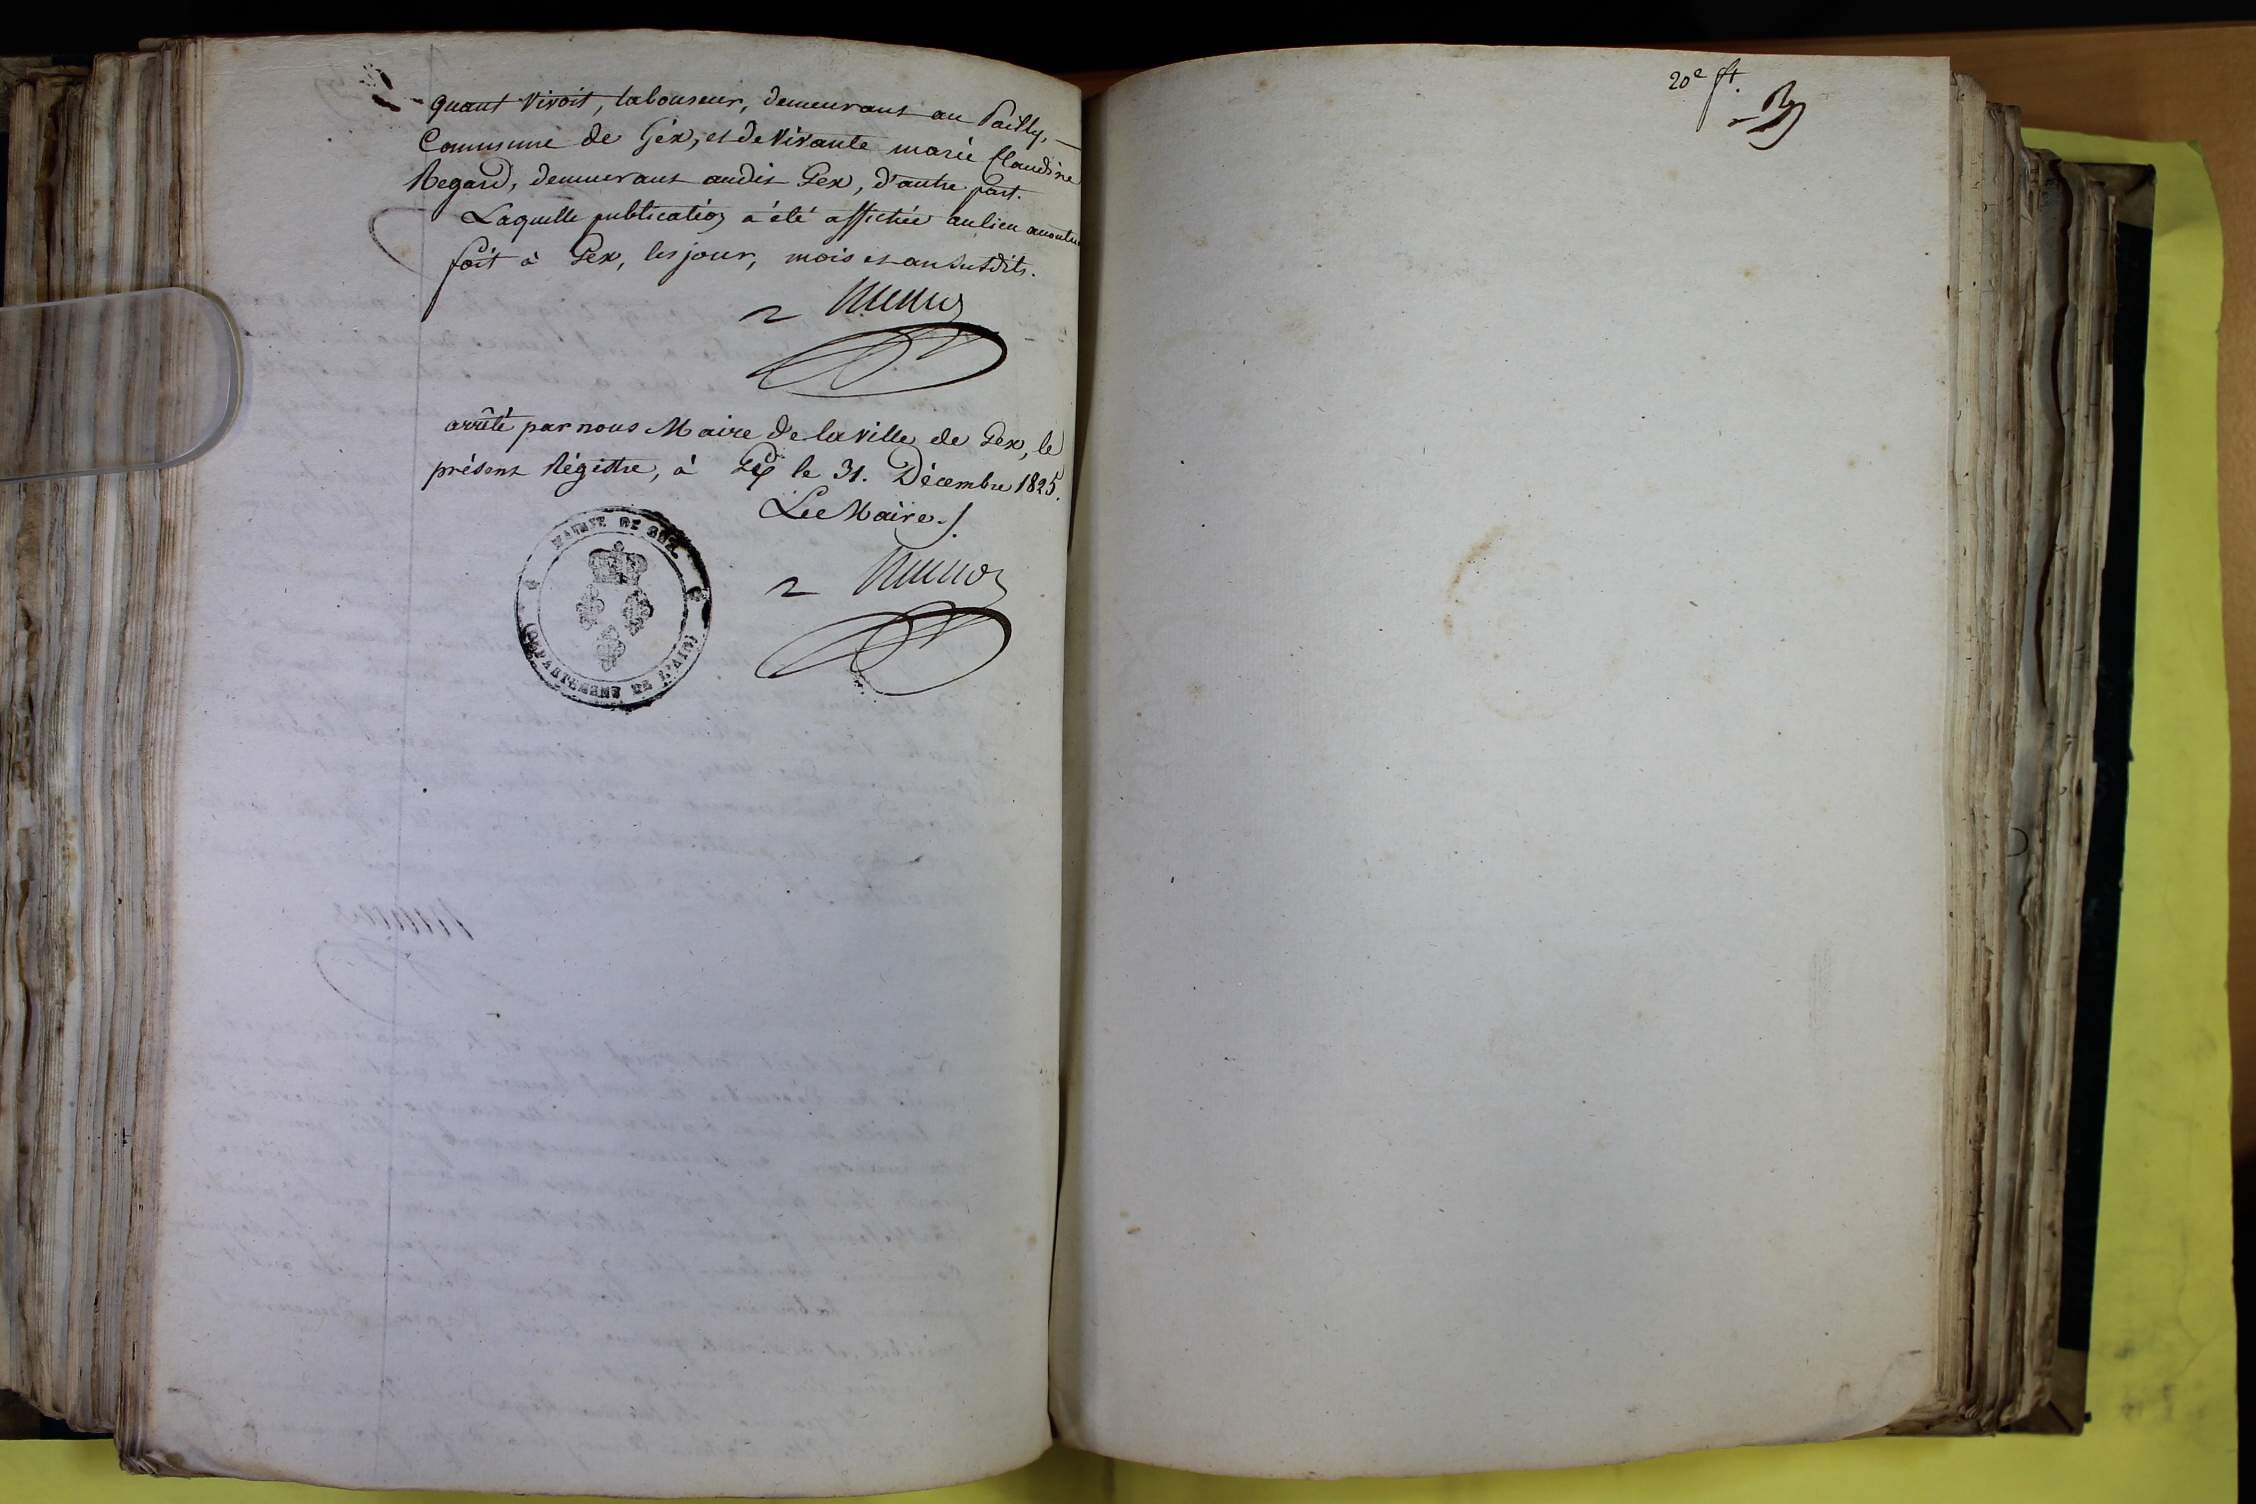 quant vivoit, laboureur, demeurant au Pailly, —
Commune de Gex, et de vivante marie Claudine
Regard, demeurant audit Gex, d'autre part.
Laquelle publication a été affichée au lieu accoutu
fait à Gex, les jour, mois et an susdits.
arrêté par nous Maire de la ville de Gex, le
présent Régistre, à Gex le 31. Décembre 1825.
Le Maire./.
MAIRIE DE GEX.
(DÉPARTEMENT DE L'AIN)
20e ft.